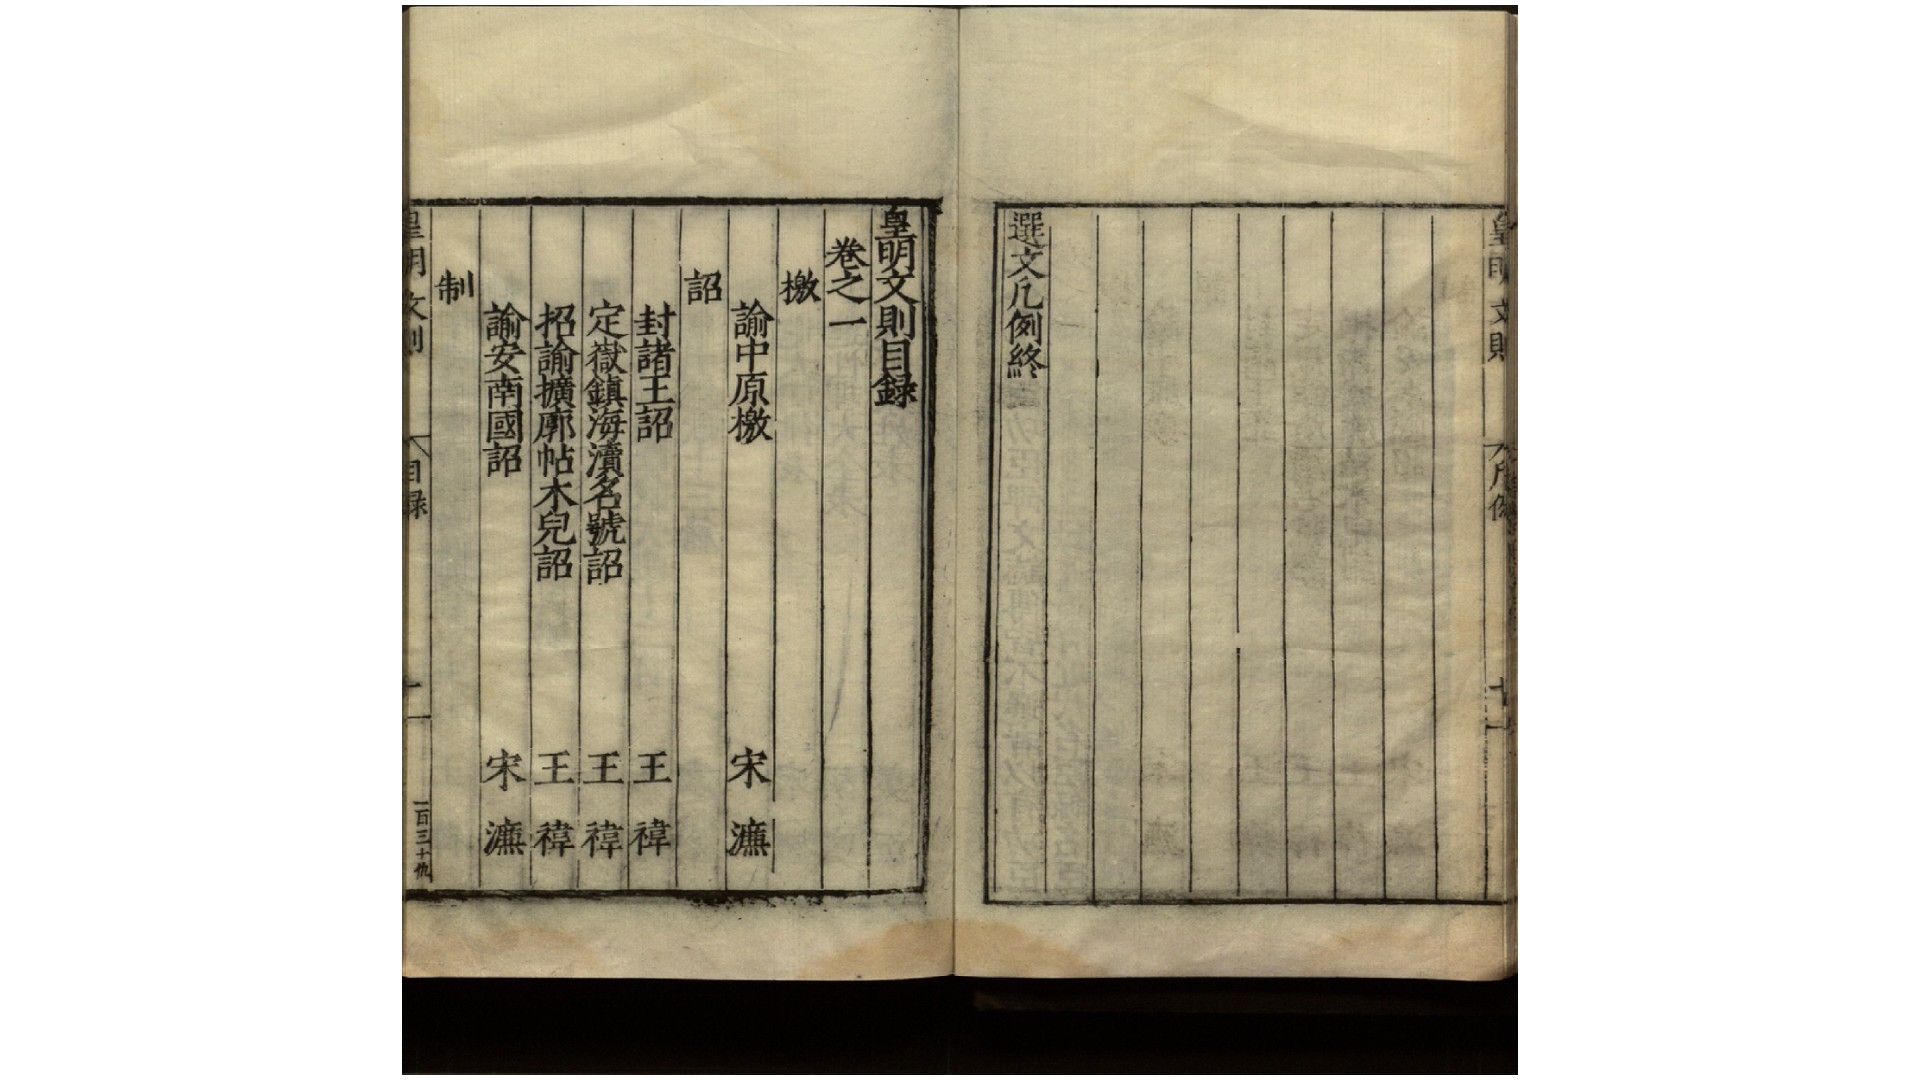 皇明文則
凡例
選文凡例終
皇明文則目録
卷之一
檄
諭中原檄 宋濂
詔
封諸王詔 王禕
定嶽鎮海瀆名號詔 王禕
招諭擴廓帖木兒詔 王禕
諭安南國詔 宋濂
制
皇明文則
目録
一